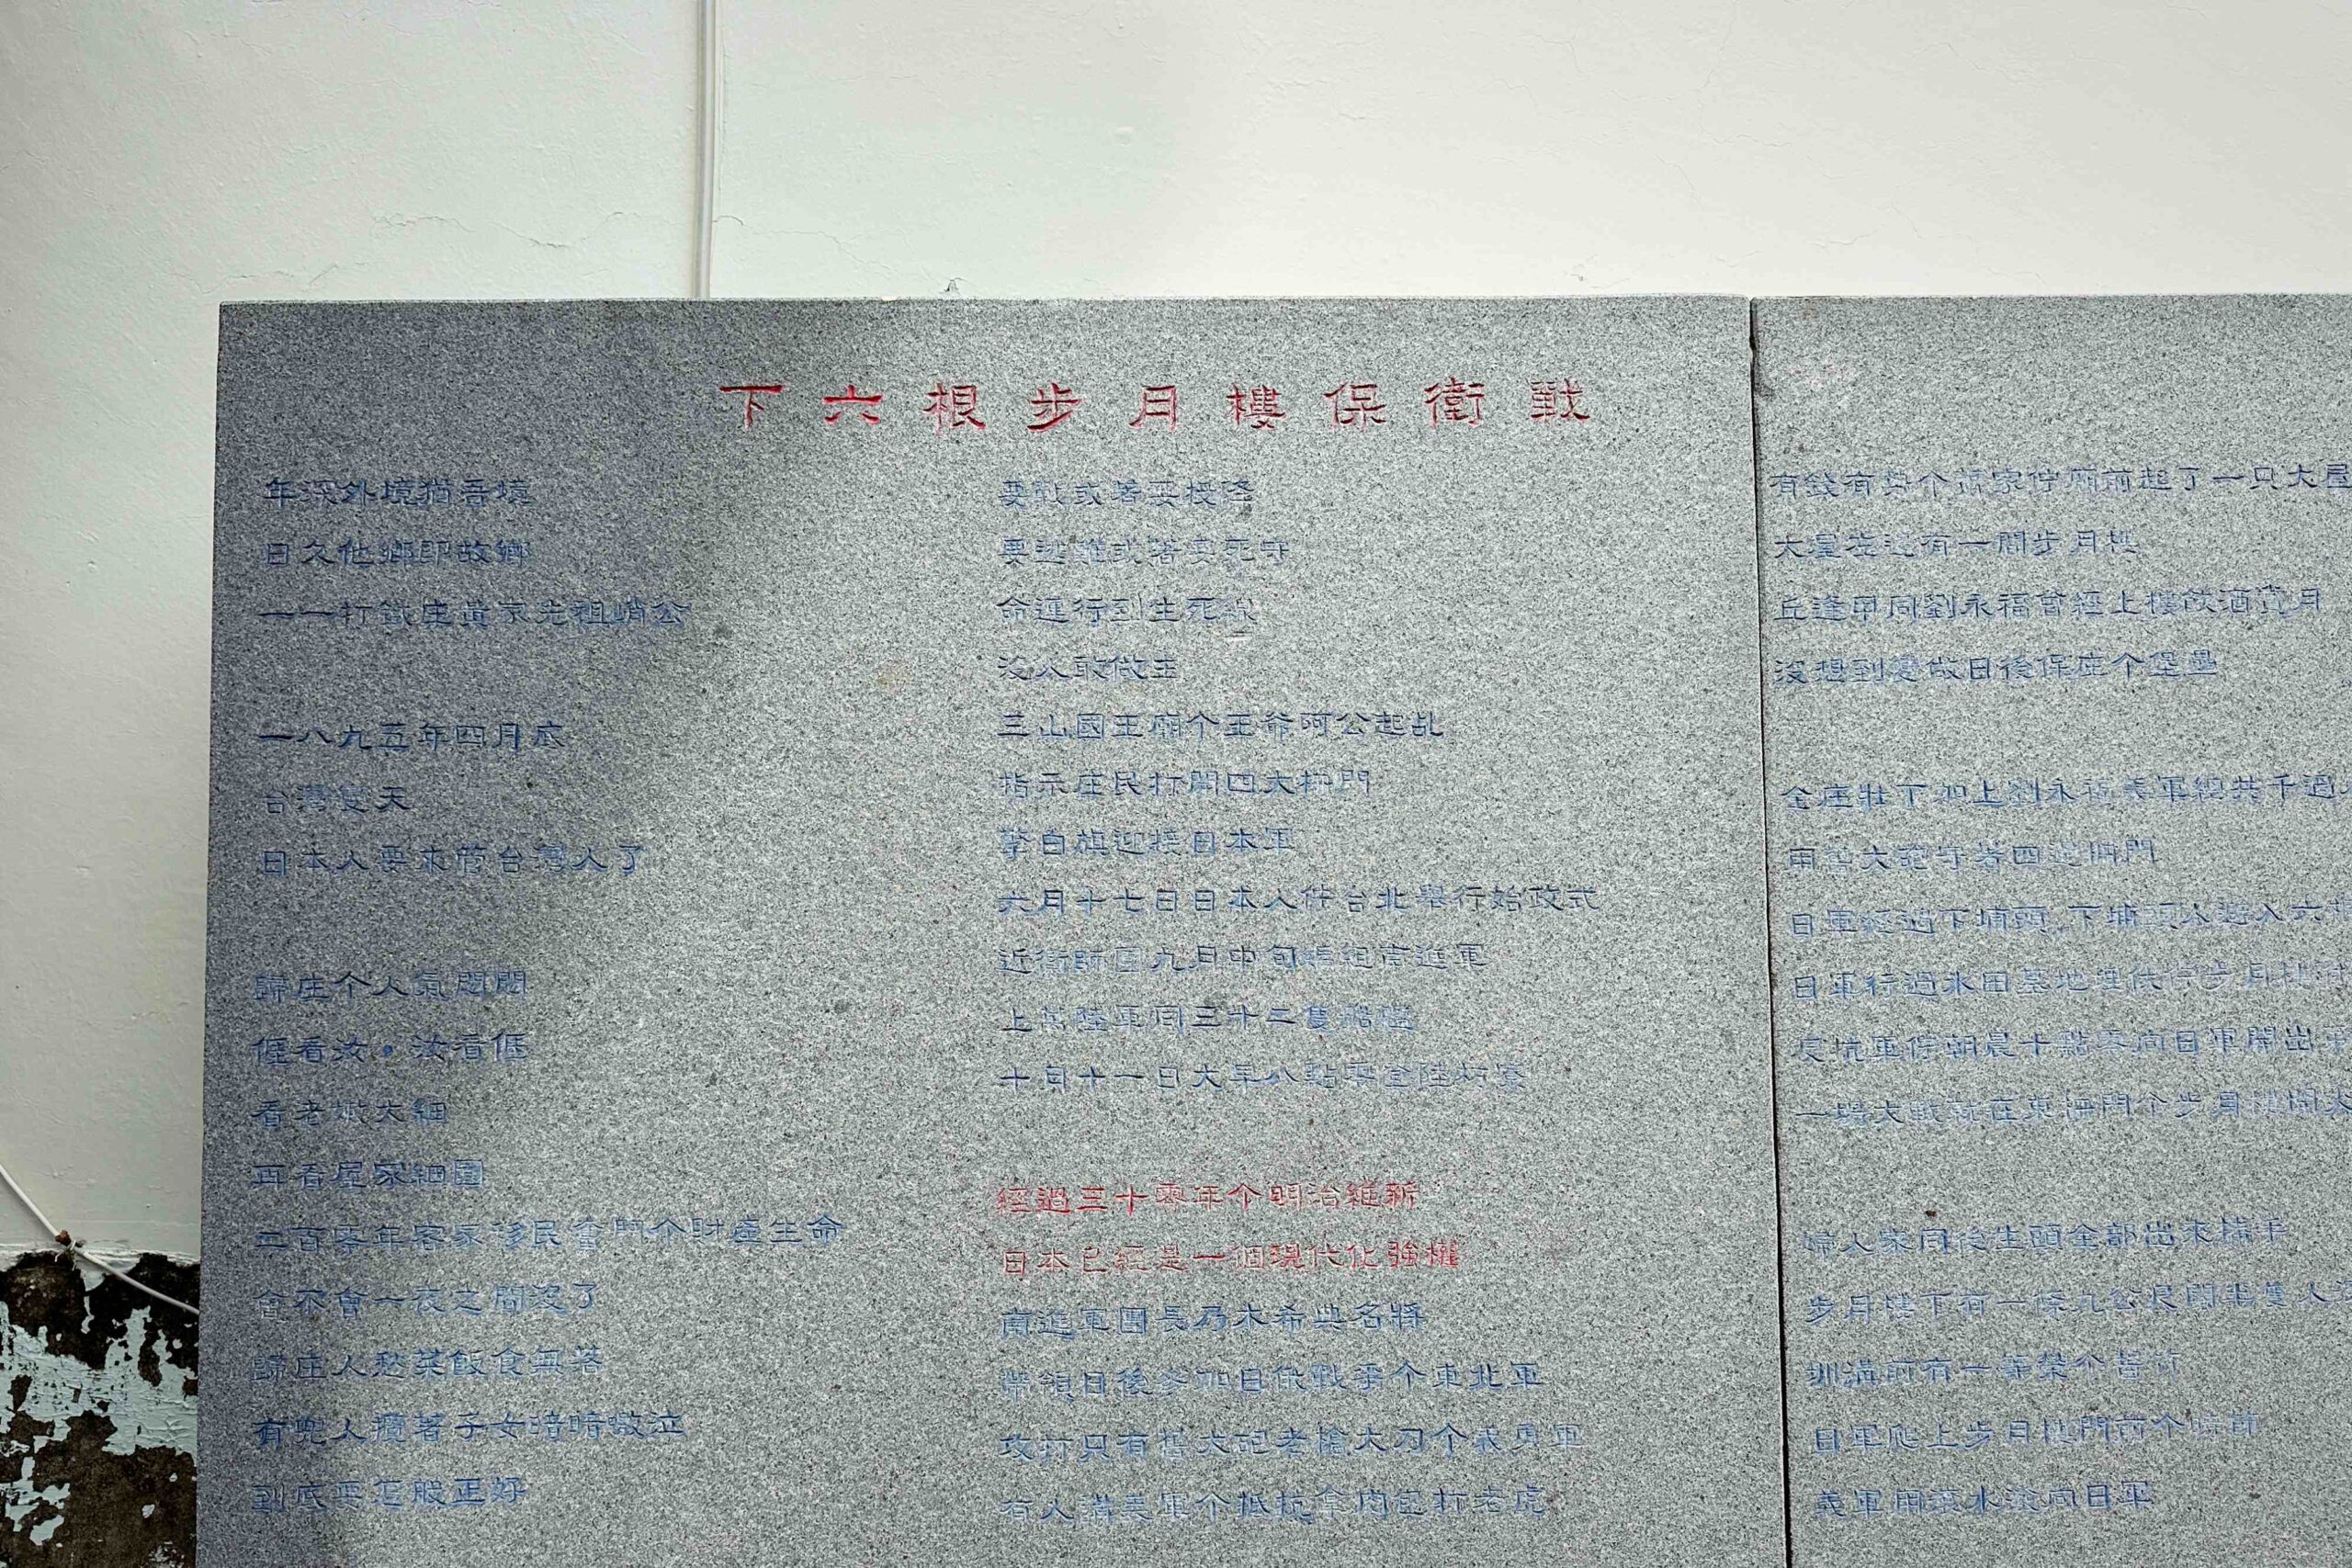 下六根步月樓保衛戰
年深外境猶吾境
日久他鄉即故鄉
——打鐵庄黃家先祖峭公
一八九五年四月底
台灣變天
日本人要來管台灣人了
歸庄个人氣悶悶
𠊎看汝・汝看𠊎
看老嫩大細
再看屋家細園
二百零年客家移民奮鬥个財產生命
會不會一夜之間沒了
歸庄人愁菜飯食無落
有兜人攬著子女暗暗噭泣
到底要怎般正好
要戰或者要投降
要逃難或者要死守
命運行到生死線
沒人敢做主
三山國王廟个王爺阿公起乩
指示庄民打開四大柵門
擎白旗迎接日本軍
六月十七日日本人佇台北舉行始政式
近衛師團九月中旬組南進軍
上萬陸軍同三十二隻船艦
十月十一日大早八點零登陸枋寮
經過三十零年个明治維新
日本已經是一個現代化強權
南進軍團長乃木希典名將
帶領日後參加日俄戰爭个東北軍
攻打只有舊大砲老槍大刀个義勇軍
有人講義軍个抵抗拿肉包打老虎
有錢有勢个蕭家佇廟前起了一只大屋
大屋左邊有一間步月樓
丘逢甲同劉永福曾經上樓飲酒賞月
沒想到變做日後保庄个堡壘
全庄壯丁加上劉永福義軍總共千過
用舊大砲守著四邊柵門
日軍經過下埔頭，下埔頭人退入六
日軍行過水田墓地埋伏佇步月樓
反抗軍佇朝晨十點零向日軍開出
一場大戰就在東柵門个步月樓開
婦人家同後生頭全部出來𢯾手
步月樓下有一條九公尺闊
圳溝前有一等莿竹
日軍爬上步月樓門前个時節
義軍用滾水潑向日軍